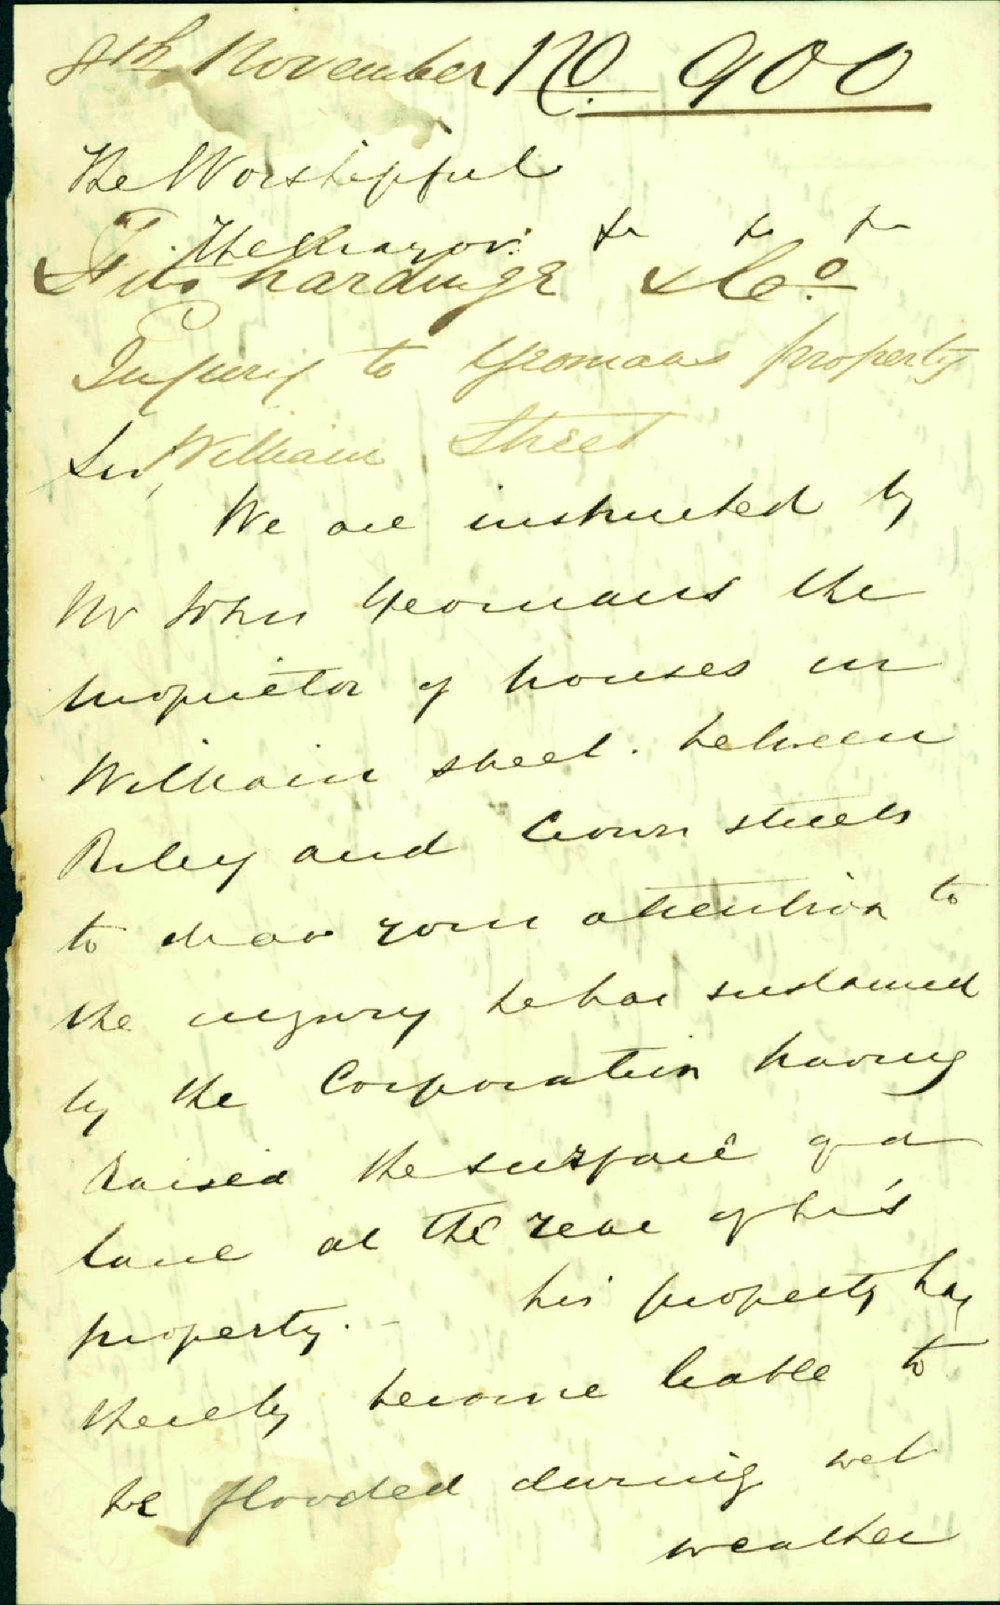 8th November No. 900
The Worshipful
The Mayor &c &c &c
Fitzhardinge & Co.
Injury to Yeomans property
William Street
Sir,
We are instructed by
Mr John Yeomans the
proprietor of houses in
William street. between
Riley and Crown streets
to draw your attention to
the injury he has sustained
by the Corporation having
raised the surface of a
lane at the rear of his
property. - his property has
thereby become liable to
be flooded during wet
weather